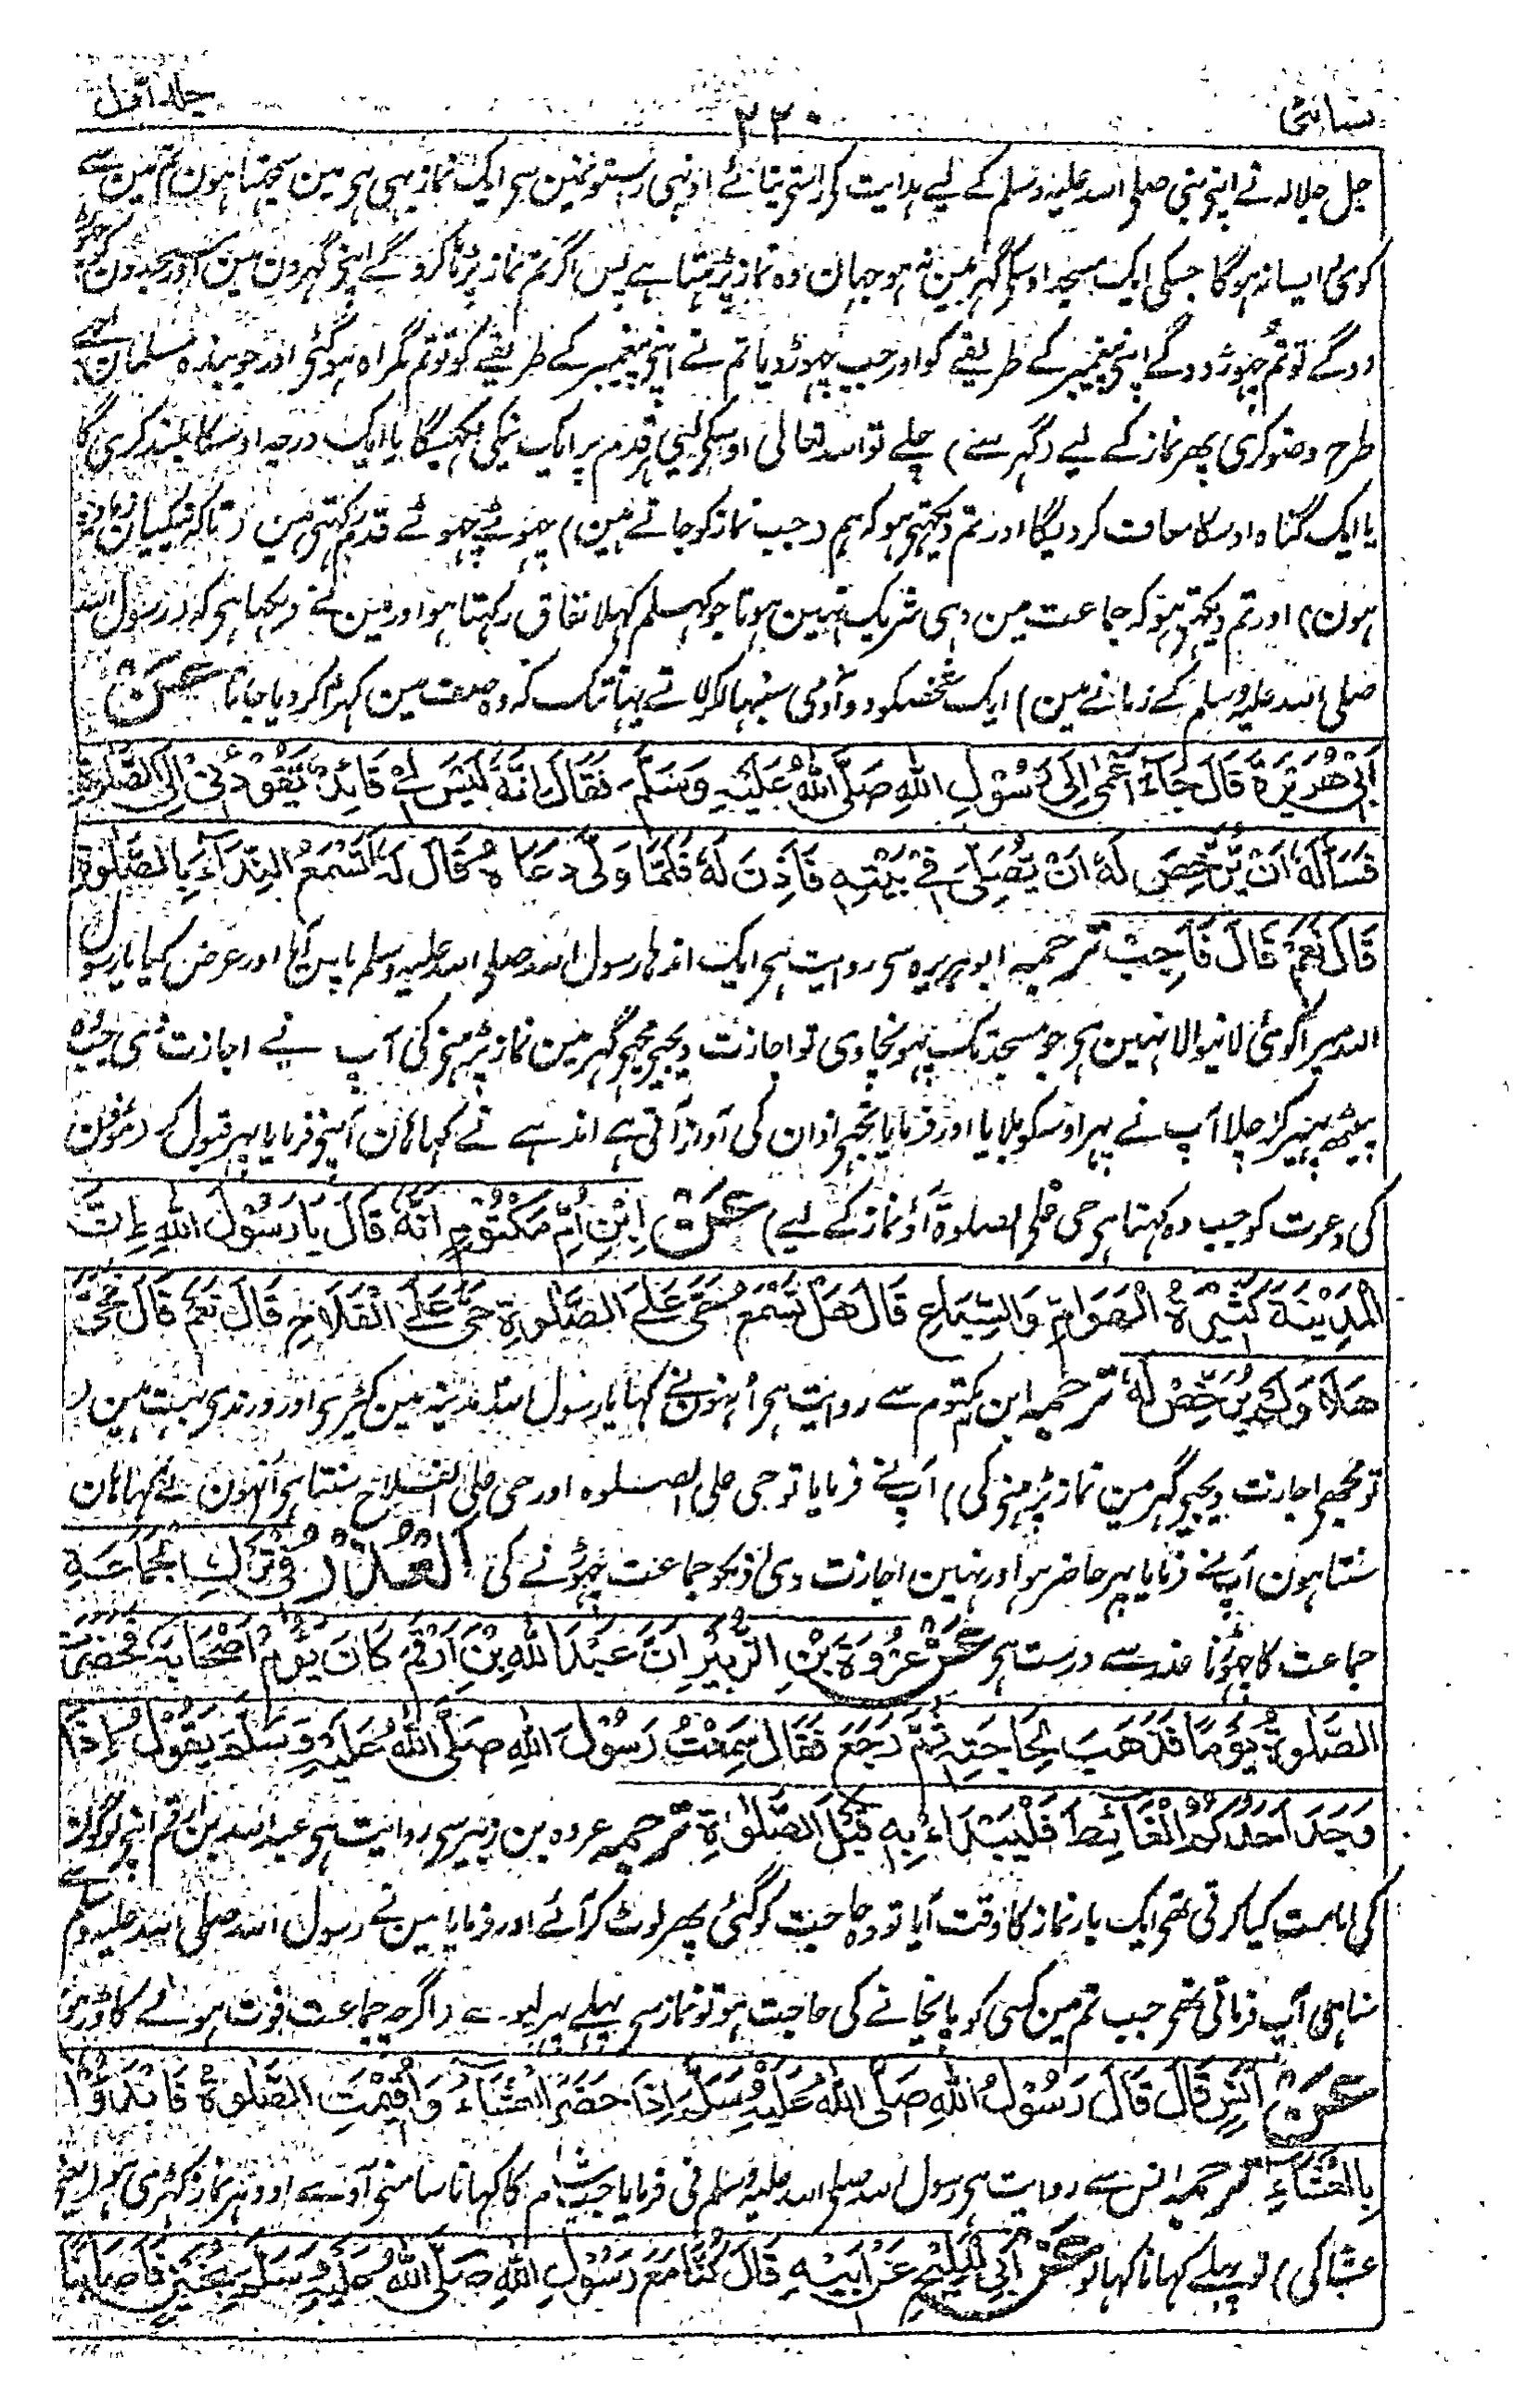 نسائی ۲۳۰ جلد اول
جل جلالہ نے اپنے نبی صلی اللہ علیہ وسلم کے لیے ہدایت کی راستے بتائے اونہی رستونمین ہی ایک نماز بہی ہی مین سمجہتا ہون تم مین سے
کوئی ایسا نہ ہوگا جسکی ایک مسجد اوسکی گہر مین نہو جہان وہ نماز پڑہتا ہے پس اگر تم نماز پڑہا کرو گے اپنی گہرون مین اور مسجدون کو چہوڑ
دوگے تو تم چہوڑ دو گے اپنی پیغمبر کے طریقے کو اور جب چہوڑ دیا تم نے اپنی پیغمبر کے طریقے کو تو تم گمراہ ہو گئی اور جو بندہ مسلمان اچہی
طرح وضو کری پھر نماز کے لیے (گہر سے) چلے تو اللہ تعالی اوسکی لیی ہر قدم پر ایک نیکی لکہیگا یا ایک درجہ اوسکا بلند کری گا
یا ایک گناہ اوسکا معاف کردیگا اور تم دیکہتی ہو کہ ہم (جب نماز کو جاتے ہین) چہوٹے چہوٹے قدم رکہتی ہین (تاکہ نیکیان زیادہ
ہون) اور تم دیکہتی ہو کہ جماعت مین وہی شریک نہین ہوتا جو کہلم کہلا نفاق رکہتا ہو اور مین نے دیکہا ہی کہ (رسول اللہ
صلی اللہ علیہ وسلم کے زمانے مین) ایک شخص کو دو آدمی سنبہالکر لاتے یہانتک کہ وہ صف مین کہڑا کر دیا جاتا عَنْ
اَبِیْ هُرَیْرَةَ قَالَ جَآءَ اَعْمٰی اِلٰی رَسُوْلِ اللّٰهِ صَلَّی اللّٰهُ عَلَیْهِ وَسَلَّمَ فَقَالَ اِنَّهٗ لَیْسَ لِیْ قَائِدٌ یَّقُوْدُنِیْ اِلَی الصَّلٰوةِ
فَسَأَلَهٗ اَنْ یُّرَخِّصَ لَهٗ اَنْ یُّصَلِّیَ فِیْ بَیْتِهٖ فَاَذِنَ لَهٗ فَلَمَّا وَلّٰی دَعَاهُ قَالَ لَهٗ اَتَسْمَعُ النِّدَآءَ بِالصَّلٰوةِ
قَالَ نَعَمْ قَالَ فَاَجِبْ ترجمہ ابو ہریرہ سی روایت ہی ایک اندہا رسول اللہ صلی اللہ علیہ وسلم پاس آیا اور عرض کیا یا رسول
اللہ میرا کوئی لانیوالا نہین ہی جو مسجد تک پہونچاوی تو اجازت دیجیی مجہی گہر مین نماز پڑہنی کی آپ نے اجازت دی جب وہ
پیٹھ پہیر کر چلا آپ نے پہر اوسکو بلایا اور فرمایا تجہی اذان کی آواز آتی ہے اندہے نے کہا ہان آپنی فرمایا پہر قبول کر (مؤذن
کی دعوت کو جب وہ کہتا ہی حی علی الصلوة آؤ نماز کے لیے) عَنْ اِبْنِ اُمِّ مَکْتُوْمٍ اَنَّهٗ قَالَ یَا رَسُوْلَ اللّٰهِ اِنَّ
الْمَدِیْنَةَ کَثِیْرَةُ الْهَوَامِّ وَالسِّبَاعِ قَالَ هَلْ تَسْمَعُ حَیَّ عَلَی الصَّلٰوةِ حَیَّ عَلَی الْفَلَاحِ قَالَ نَعَمْ قَالَ فَحَیَّ
هَلًا وَلَمْ یُرَخِّصْ لَهٗ ترجمہ ابن مکتوم سے روایت ہی اُنہونے کہا یا رسول اللہ مدینہ مین کیڑی اور درندی بہت ہین
تو مجہی اجازت دیجیی گہر مین نماز پڑہنی کی) آپنے فرمایا تو حی علی الصلوہ اور حی علی الفلاح سنتا ہی اُنہون نے کہا ہان
سنتا ہون آپنے فرمایا پہر حاضر ہو اور نہین اجازت دی اونکو جماعت چہوڑنے کی اَلْعُذْرُ فِیْ تَرْكِ الْجَمَاعَةِ
جماعت کا چہوڑنا عذر سے درست ہی عَنْ عُرْوَةَ بْنِ الزُّبَیْرِ اَنَّ عَبْدَ اللّٰهِ بْنَ اَرْقَمَ کَانَ یَؤُمُّ اَصْحَابَهٗ فَحَضَرَتِ
الصَّلٰوةُ یَوْمًا فَذَهَبَ لِحَاجَتِهٖ ثُمَّ رَجَعَ فَقَالَ سَمِعْتُ رَسُوْلَ اللّٰهِ صَلَّی اللّٰهُ عَلَیْهِ وَسَلَّمَ یَقُوْلُ اِذَا
وَجَدَ اَحَدُکُمُ الْغَائِطَ فَلْیَبْدَاءْ بِهٖ قَبْلَ الصَّلٰوةِ ترجمہ عروہ بن زبیر سی روایت ہی عبد اللہ بن ارقم اپنی لوگون
کی امامت کیا کرتی تہی ایک بار نماز کا وقت آیا تو وہ حاجت کو گئی پھر لوٹ کر آئے اور فرمایا مین نے رسول اللہ صلی اللہ علیہ وسلم سے
سنا ہی آپ فرماتی تہی جب تم مین کسی کو پائخانے کی حاجت ہو تو نماز سی پہلے پہر لیوے (اگرچہ جماعت فوت ہونے کا ڈر ہو)
عَنْ اَنَسٍ قَالَ قَالَ رَسُوْلُ اللّٰهِ صَلَّی اللّٰهُ عَلَیْهِ وَسَلَّمَ اِذَا حَضَرَ الْعَشَاءُ وَاُقِیْمَتِ الصَّلٰوةُ فَابْدَؤُا
بِالْعَشَاءِ ترجمہ انس سے روایت ہی رسول اللہ صلی اللہ علیہ وسلم نی فرمایا جب شام کا کہانا سامنی آوے اور ادہر نماز کہڑی ہو (یعنی
عشا کی) تو پہلے کہانا کہا لو عَنْ اَبِی الْمَلِیْحِ عَنْ اَبِیْهِ قَالَ کُنَّا مَعَ رَسُوْلِ اللّٰهِ صَلَّی اللّٰهُ عَلَیْهِ وَسَلَّمَ بِحُنَیْنٍ فَاَصَابَنَا